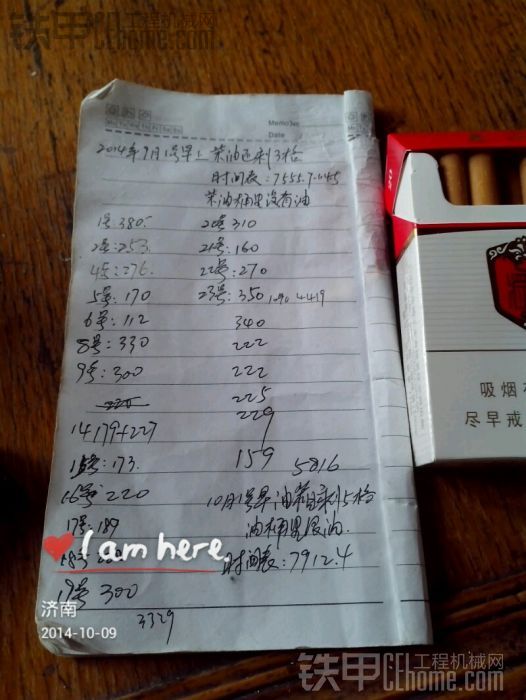 铁甲工程机械网
CEhome.com
Memo No.
Mo Tu We Th Fr Sa Su
Date
2014年9月1号早上柴油还剩3格
时间表:7555.7
柴油桶里没有油
1号380
2号:253
4号:276
5号:170
6号:112
8号:330
9号:300
14 179+227
173
16号220
17号:189
18号
19号 300
3329
20号310
21号:160
22号:270
23号:350 1090 4419
340
222
222
225
229
159
5816
10月1号早油箱剩5格
油桶里没油
时间表:7912.4
I am here
济南
2014-10-09
吸烟
尽早戒
铁甲工程机械网
CEhome.com